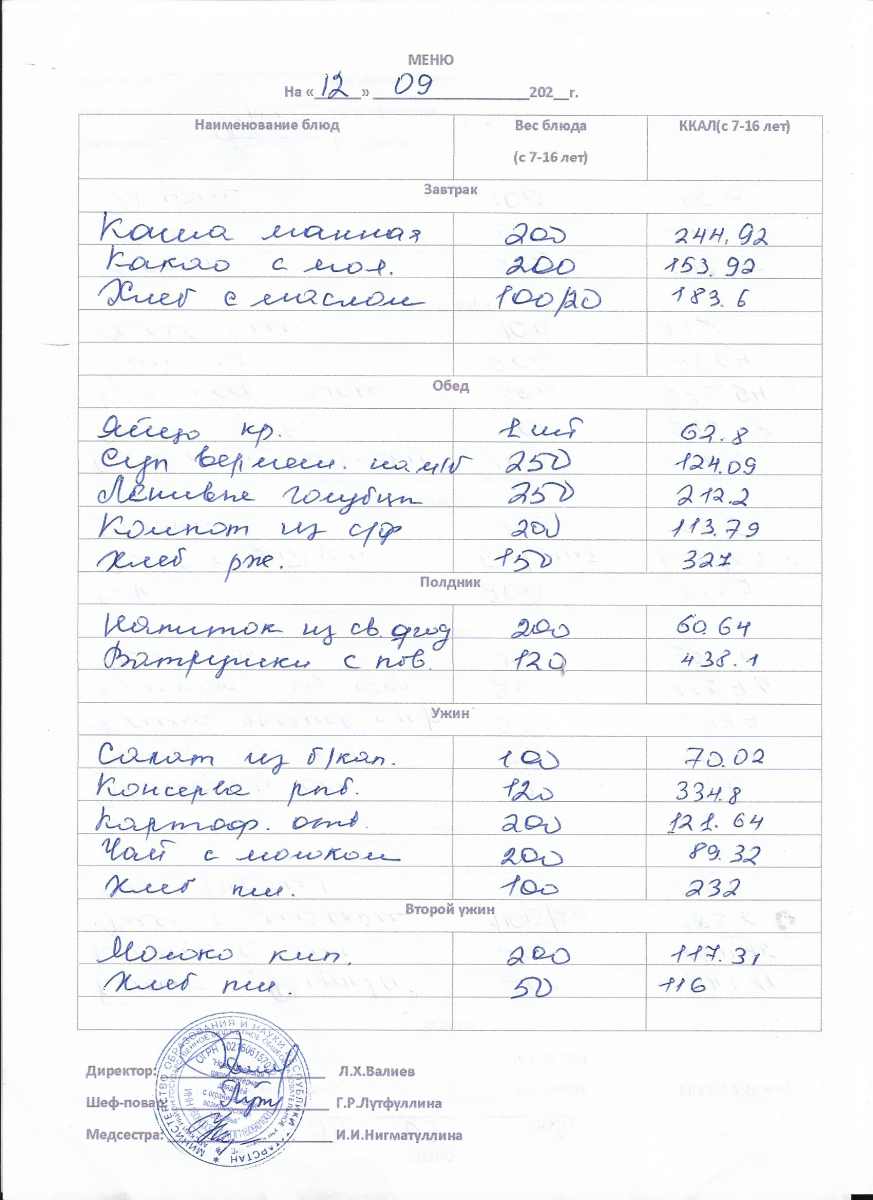 МЕНЮ
На «12» 09 202__г.
Наименование блюд Вес блюда (с 7-16 лет) ККАЛ(с 7-16 лет)
Завтрак
Каша манная 200 244.92
Какао с мол. 200 153.92
Хлеб с маслом 100/20 183.6
Обед
Яйцо кр. 1 шт 62.8
Суп вермиш. на м/б 250 124.09
Ленивые голубцы 250 212.2
Компот из с/ф 200 113.79
Хлеб рж. 150 327
Полдник
Напиток из св. ягод 200 60.64
Ватрушки с пов. 120 438.1
Ужин
Салат из б/кап. 100 70.02
Консерва рыб. 120 334.8
Картоф. отв. 200 121.64
Чай с молоком 200 89.32
Хлеб пш. 100 232
Второй ужин
Молоко кип. 200 117.31
Хлеб пш. 50 116
Директор: Л.Х.Валиев
Шеф-повар: Г.Р.Лутфуллина
Медсестра: И.И.Нигматуллина
МИНИСТЕРСТВО ОБРАЗОВАНИЯ И НАУКИ РЕСПУБЛИКИ ТАТАРСТАН